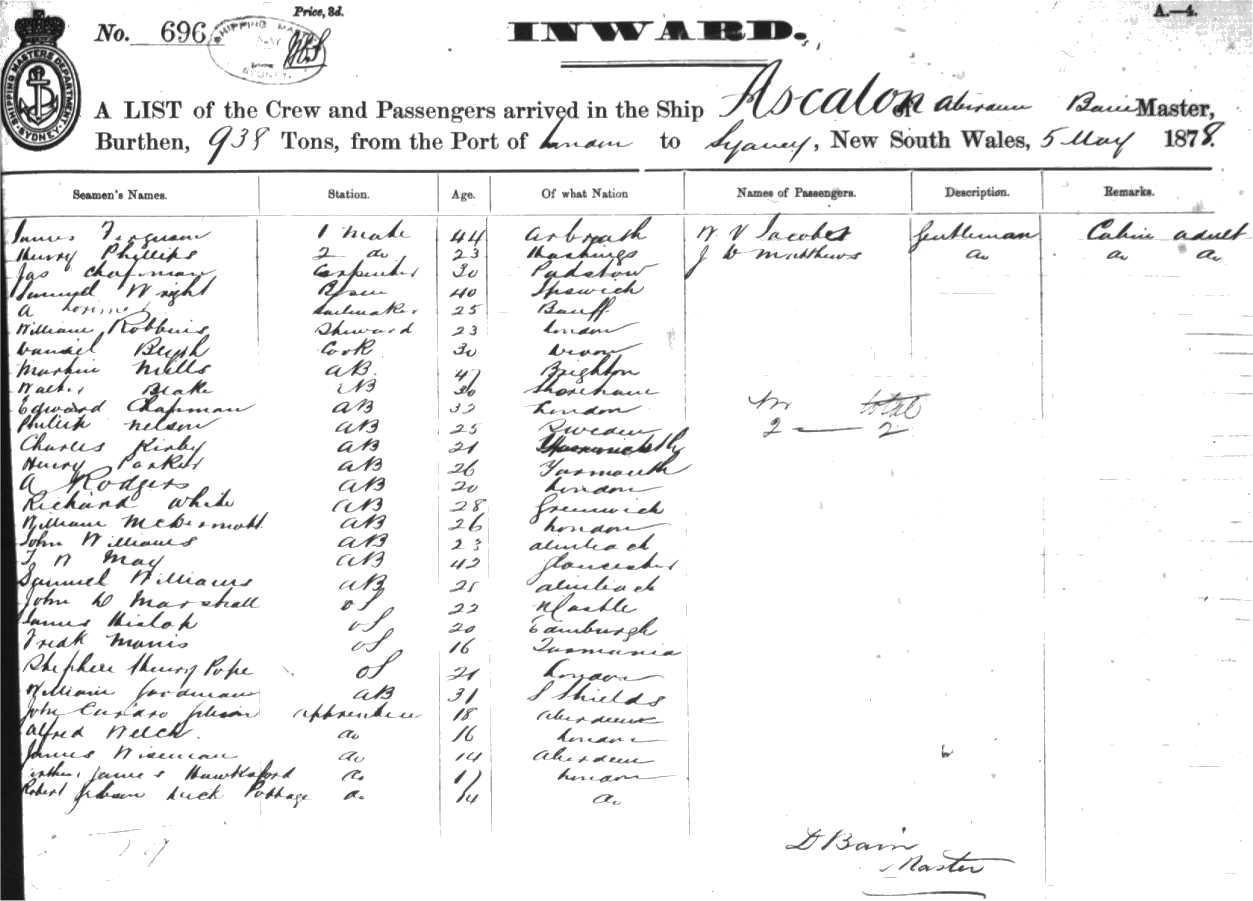 Price, 3d.
A.—4.
No. 696
SHIPPING MA
SYDNEY
INWARD.
SHIPPING MASTERS DEPARTMENT
SYDNEY
A LIST of the Crew and Passengers arrived in the Ship Ascalon of Bain Master,
Burthen, 938 Tons, from the Port of London to Sydney, New South Wales, 5 May 1878.
Seamen's Names. Station. Age. Of what Nation Names of Passengers. Description. Remarks.
James Ferguson 1 Mate 44 Arbroath Gentleman Cabin adult
Henry Phillips 2 do 23 Hastings J D Matthews do do do
Jas Chapman Carpenter 30 Padstow
Samuel Wright Bosun 40 Ipswich
A Sailmaker 25 Banff
William Robbins Steward 23 London
Cook 30 Devon
Martin Mills AB 47 Brighton
Walter Blake AB 30 Shoreham
Edward Chapman AB 32 London
M total
Nelson AB 25 Sweden
2 — 2
Charles Kirby AB 21
Henry Parker AB 26 Yarmouth
A Rodgers AB 20 London
Richard White AB 28 Greenwich
William McDermott AB 26 London
John Williams AB 23
T W May AB 42 Gloucester
Samuel Williams AB 21
John D Marshall OS 22 NCastle
James Hislop OS 20 Edinburgh
Fredk OS 16 Tasmania
Stephen Henry Pope OS 21 London
William AB 31 S Shields
John Gibson apprentice 18 Aberdeen
Alfred Welch. do 16 London
James Wiseman do 14 Aberdeen
James Hawksford do 17 London
Robert Gibson Luck Pottage do 14 do
D Bain
Master